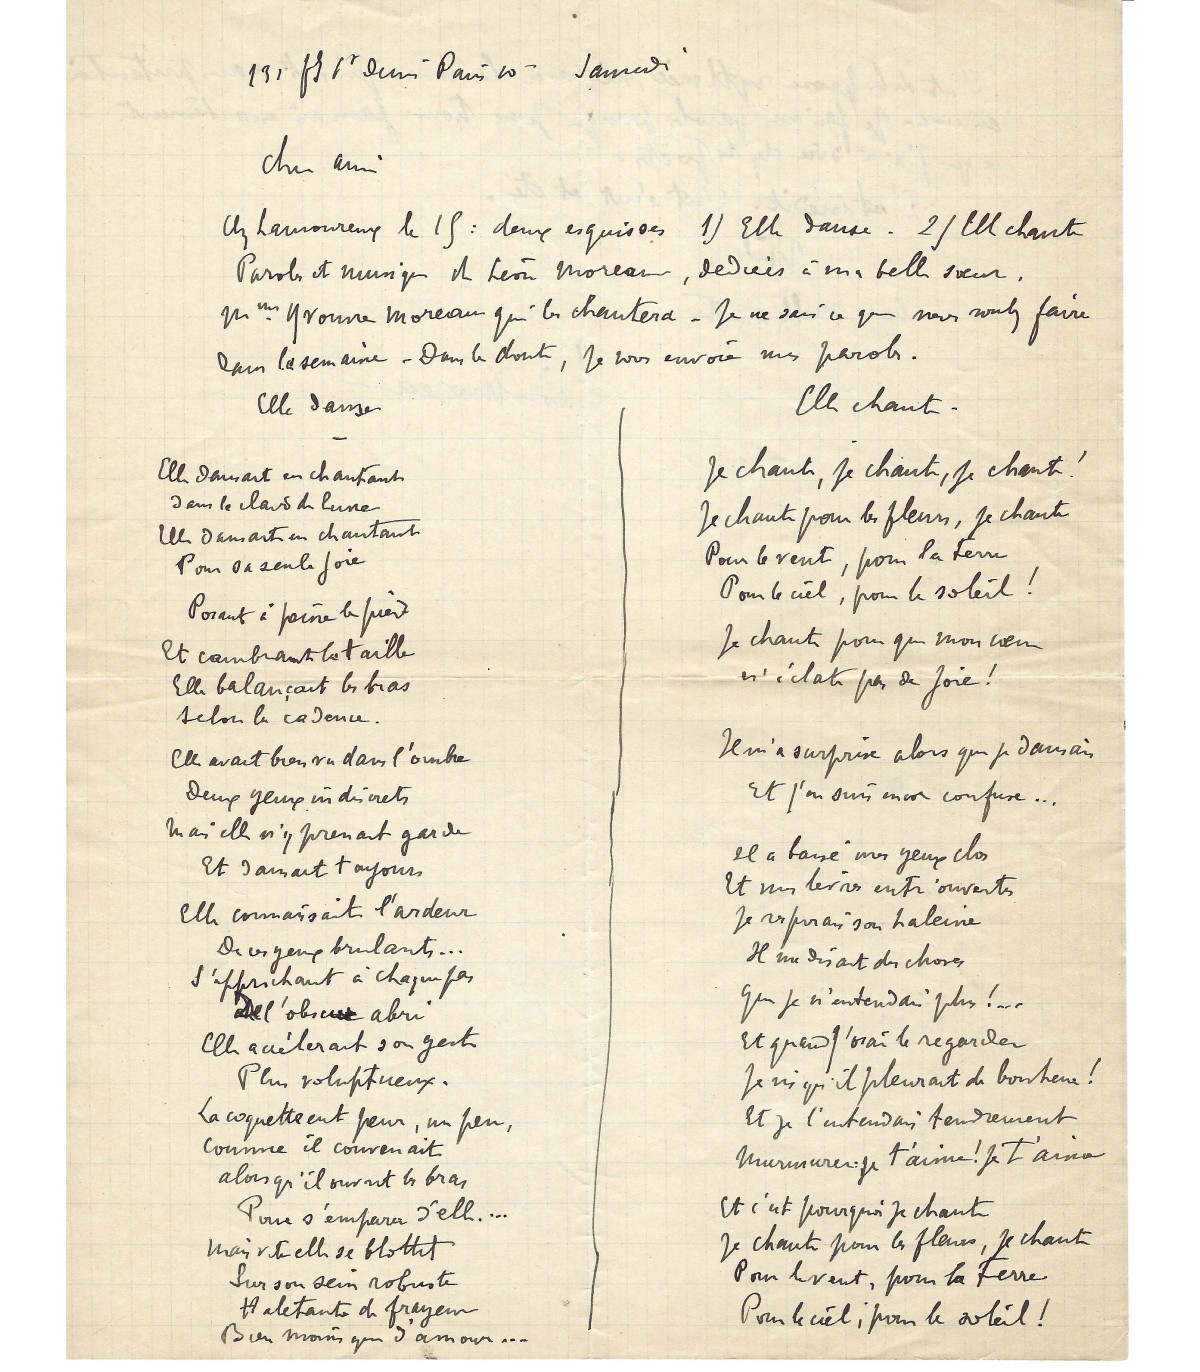 131 fg St Denis Paris 10e Samedi
Cher ami
Chez Lamoureux le 15 : deux esquisses 1) Elle danse - 2) Elle chante
Paroles et musique de Léon Moreau, dédiées à ma belle sœur,
Mme Yvonne Moreau qui les chantera - Je ne sais ce que vous voulez faire
dans la semaine - Dans le doute, je vous envoie mes paroles.
Elle danse
Elle dansait en chantant
Dans le clair de lune
Elle dansait en chantant
Pour sa seule joie
Posant à peine le pied
Et cambrant la taille
Elle balançait les bras
Selon la cadence.
Elle avait bien vu dans l'ombre
Deux yeux indiscrets
Mais elle n'y prenait garde
Et dansait toujours
Elle connaissait l'ardeur
De ces yeux brulants...
S'approchant à chaque pas
De l'obscur abri
Elle accélérait son geste
Plus voluptueux.
La coquette eut peur, un peu,
Comme il convenait
alors qu'il ouvrit les bras
Pour s'emparer d'elle....
Mais vite elle se blottit
Sur son sein robuste
Haletante de frayeur
Bien moins que d'amour...
Elle chante -
Je chante, je chante, je chante !
Je chante pour les fleurs, je chante
Pour le vent, pour la terre
Pour le ciel, pour le soleil !
Je chante pour que mon cœur
n'éclate pas de joie !
Il m'a surprise alors que je dansais
Et j'en suis encor confuse...
Il a baisé mes yeux clos
Et mes lèvres entr'ouvertes
Je respirais son haleine
Il me disait des choses
Que je n'entendais plus !...
Et quand j'osai le regarder
Je vis qu'il pleurait de bonheur !
Et je l'entendais tendrement
Murmurer : je t'aime ! Je t'aime
Et c'est pourquoi je chante
Je chante pour les fleurs, je chante
Pour le vent, pour la Terre
Pour le ciel, pour le soleil !